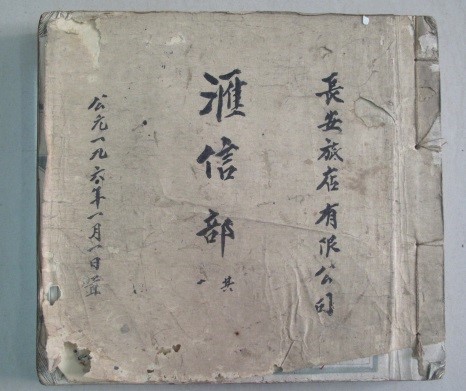 長安旅店有限公司
滙信部
其一
公元一九六年一月一日